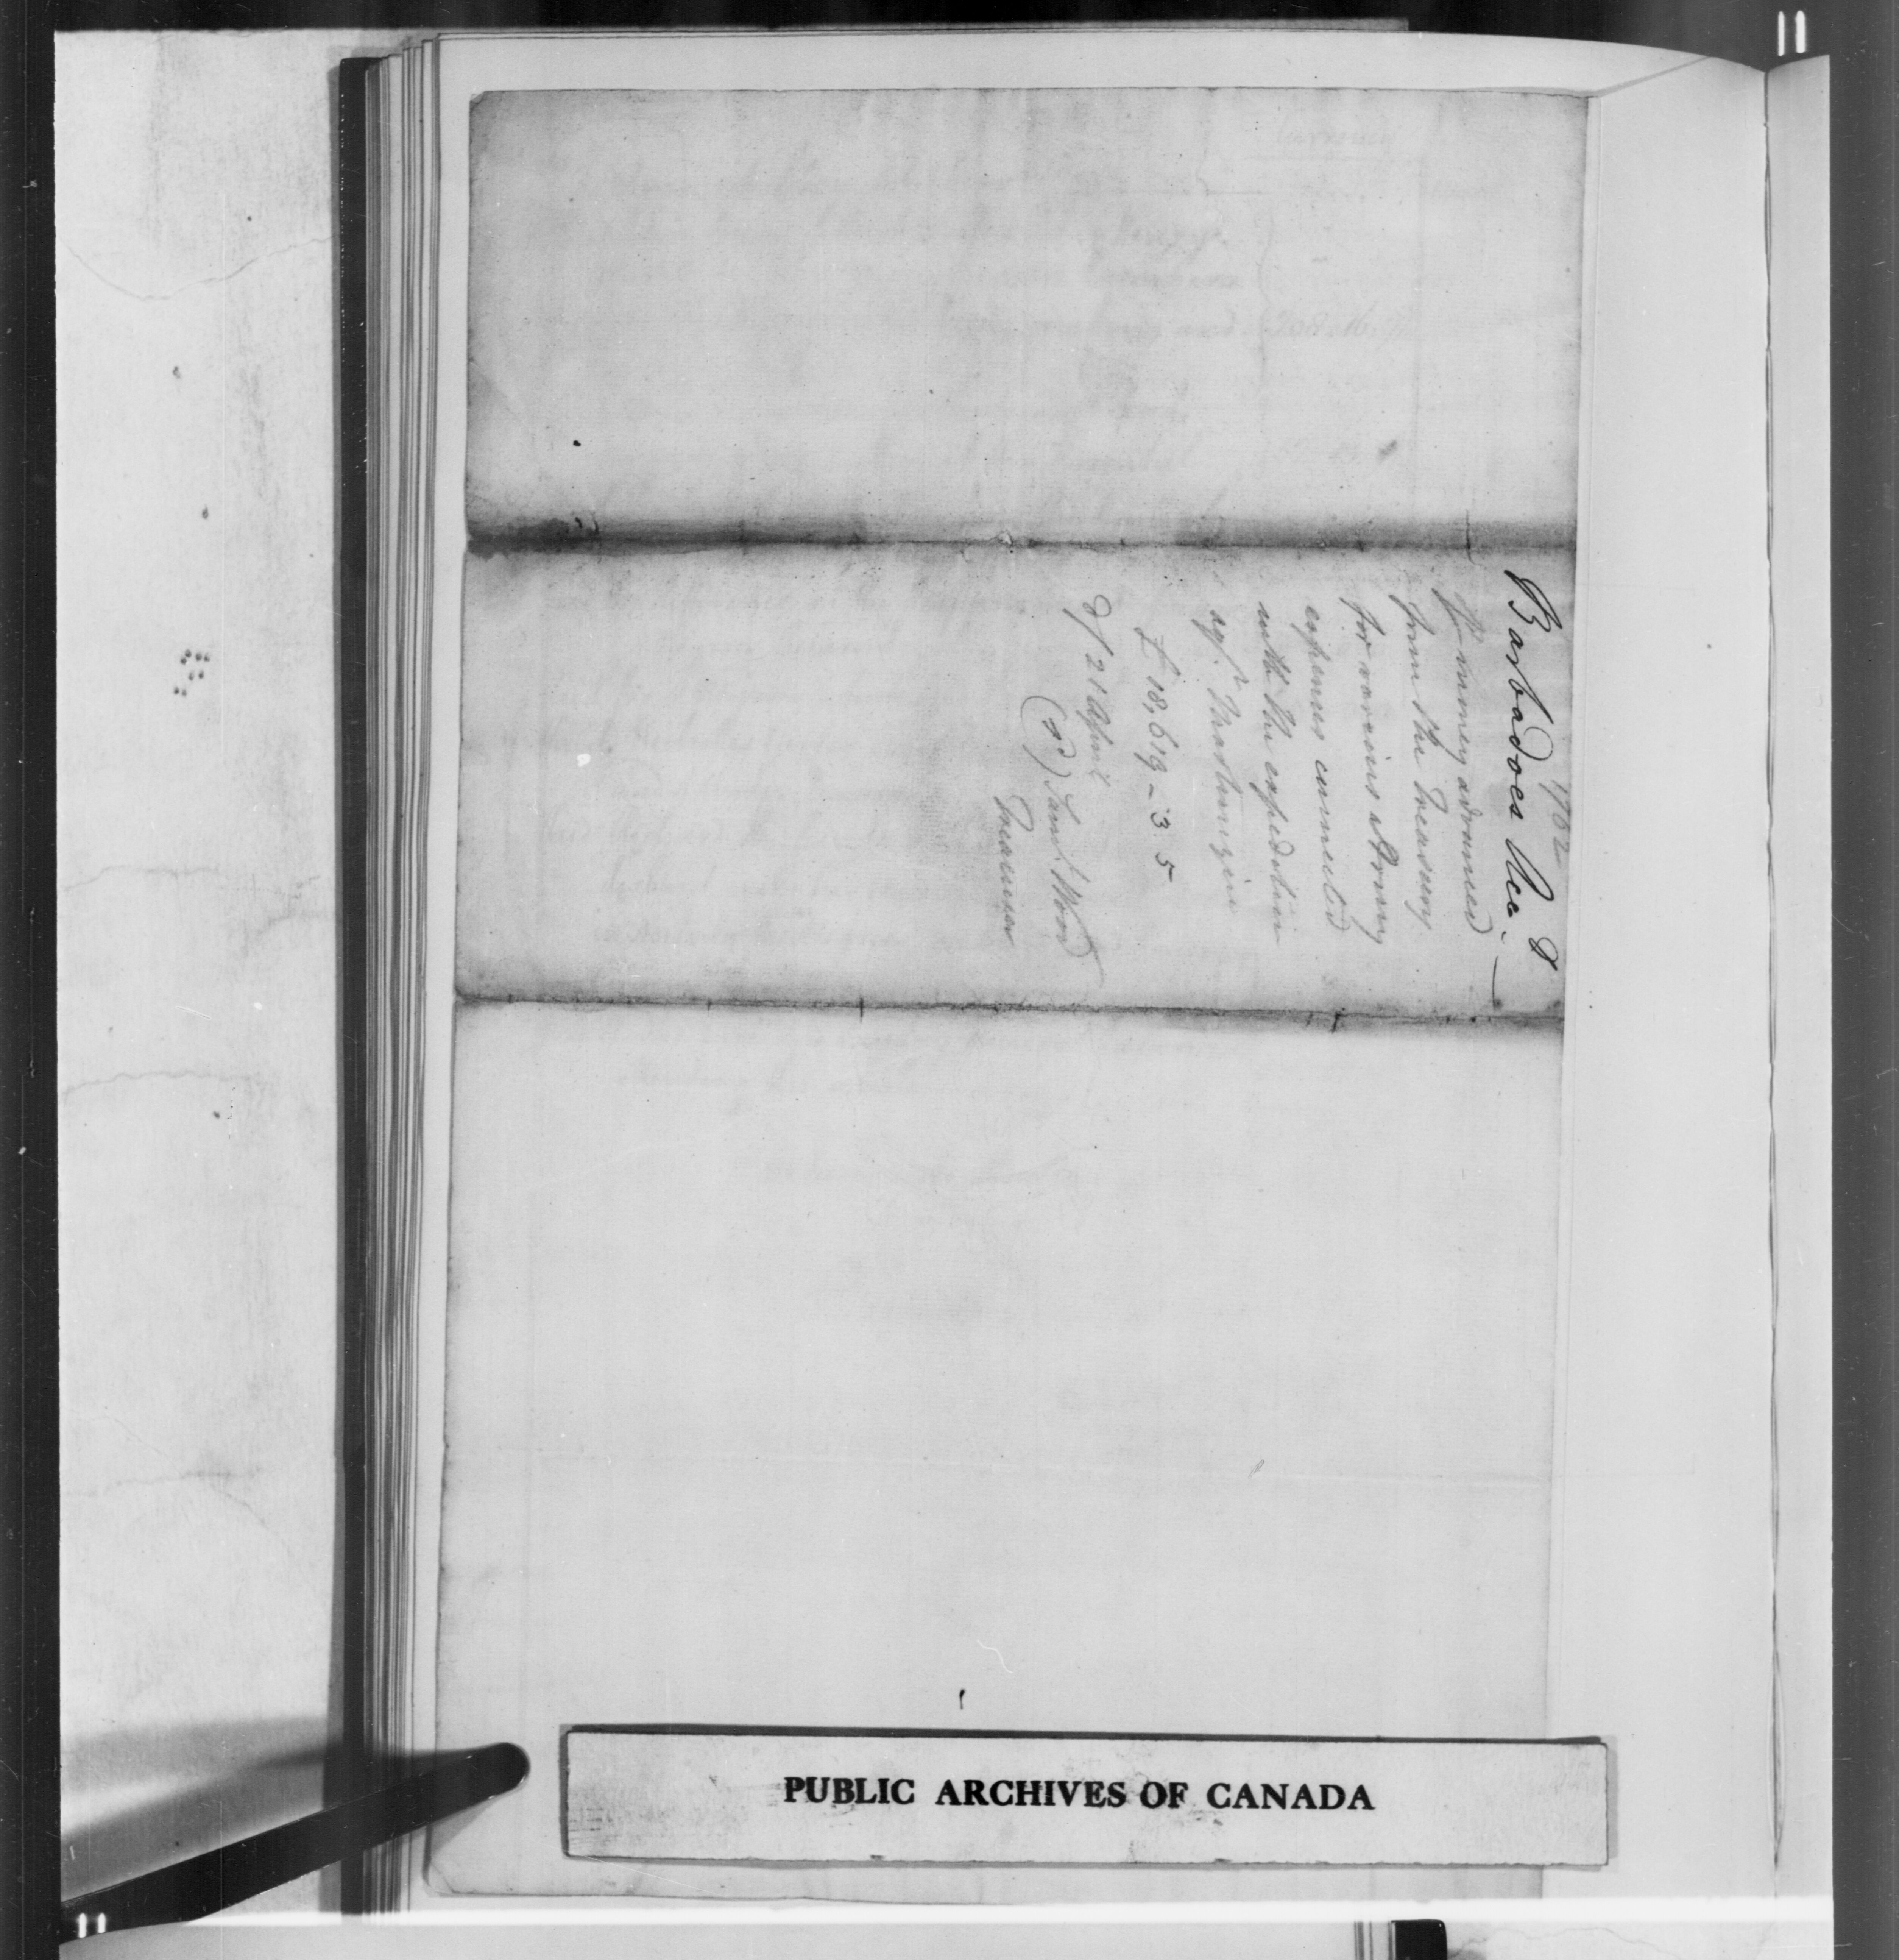 1762
8
Barbadoes Acc.
Of money advanced
from the Treasury
for various Army
expences connected
with the expedition
agt. Martinique
£ 18,619 - 3. 5
d/ 21 April
Saml. Wood
Treasurer
PUBLIC ARCHIVES OF CANADA